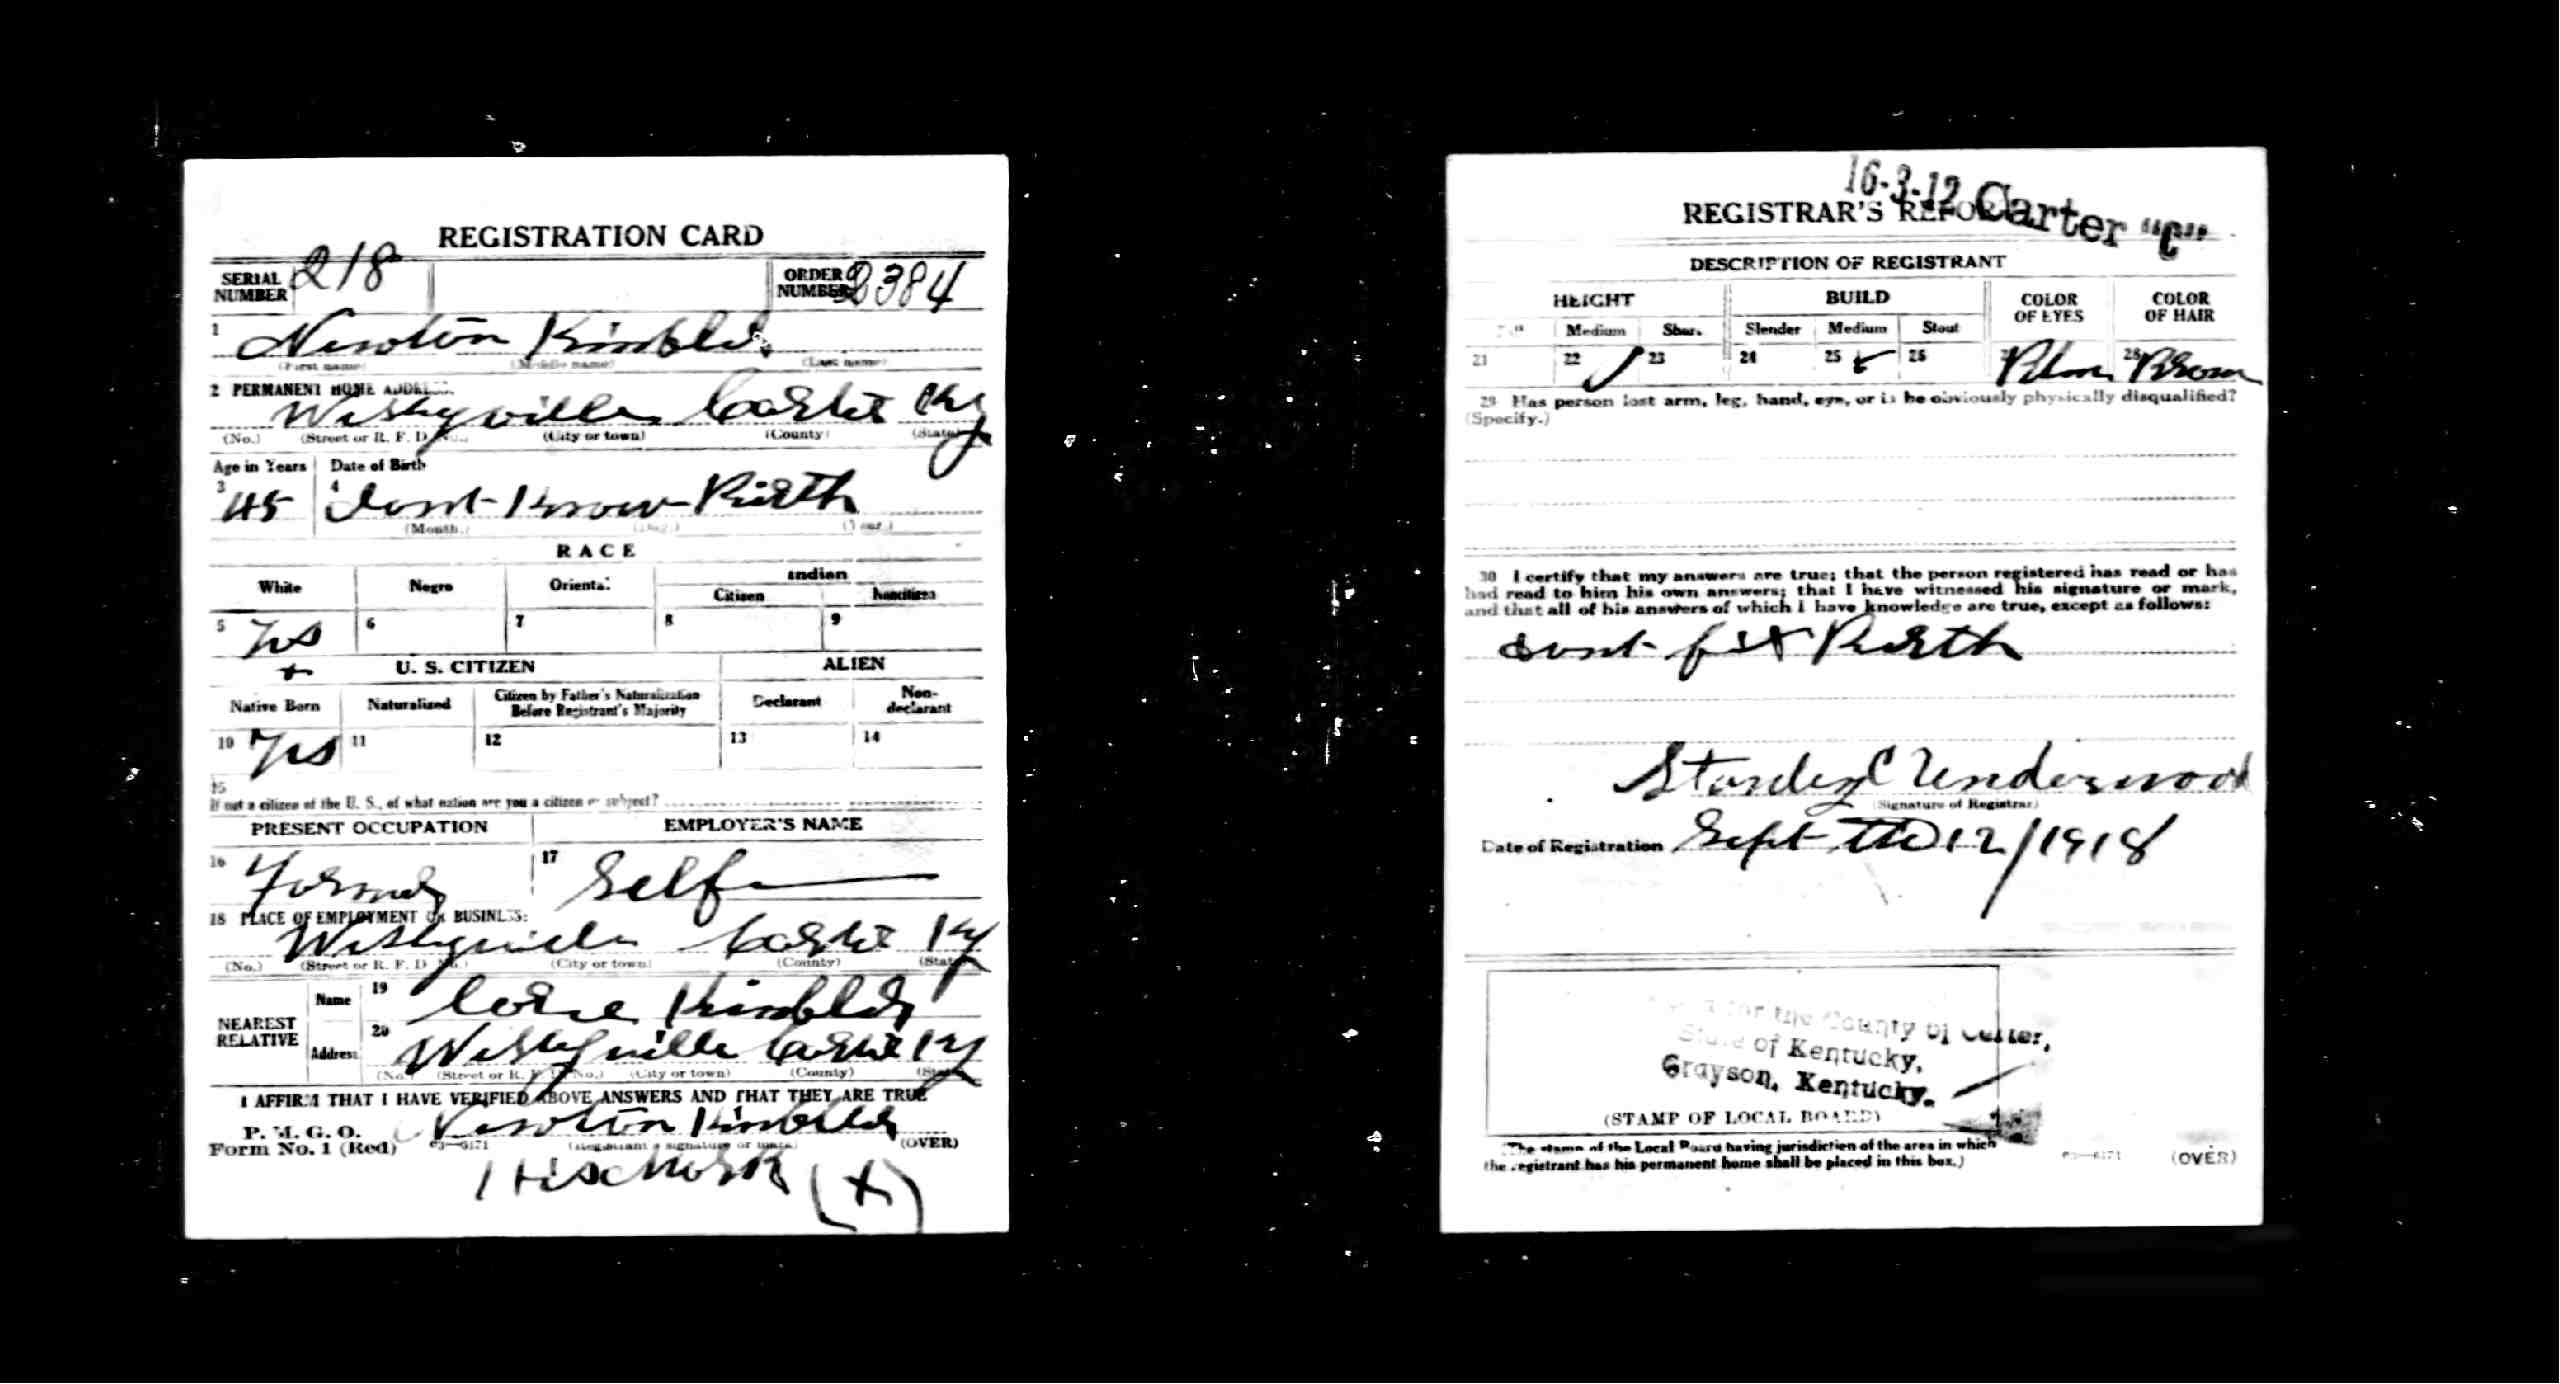 REGISTRATION CARD
SERIAL NUMBER 218
ORDER NUMBER 2384
1 Newton Kimbler
(First name) (Middle name) (Last name)
2 PERMANENT HOME ADDRESS
Wesleyville Carter Ky
(No.) (Street or R. F. D. No.) (City or town) (County) (State)
Age in Years Date of Birth
3 45 4 dont Know Birth
(Month.) (Day.) (Year.)
RACE
White Negro Oriental Indian
Citizen Noncitizen
5 Yes 6 7 8 9
U. S. CITIZEN ALIEN
Native Born Naturalized Citizen by Father's Naturalization Before Registrant's Majority Declarant Non-declarant
10 Yes 11 12 13 14
15
If not a citizen of the U. S., of what nation are you a citizen or subject?
PRESENT OCCUPATION EMPLOYER'S NAME
16 17 Self
18 PLACE OF EMPLOYMENT OR BUSINESS:
Wesleyville Carter Ky
(No.) (Street or R. F. D. No.) (City or town) (County) (State)
NEAREST RELATIVE
Name 19 Kimbler
Address 20 Wesleyville Carter Ky
(No.) (Street or R. F. D. No.) (City or town) (County) (State)
I AFFIRM THAT I HAVE VERIFIED ABOVE ANSWERS AND THAT THEY ARE TRUE
P. M. G. O.
Form No. 1 (Red) 03—6171 Newton Kimbler
(Registrant's signature or mark) (OVER)
His Mark (X)
16-3-12 Carter "C"
REGISTRAR'S REPORT
DESCRIPTION OF REGISTRANT
HEIGHT BUILD COLOR OF EYES COLOR OF HAIR
Tall Medium Short Slender Medium Stout
21 22 ✓ 23 24 25 ✓ 26 27 Blue 28 Brown
29 Has person lost arm, leg, hand, eye, or is he obviously physically disqualified?
(Specify.)
30 I certify that my answers are true; that the person registered has read or has
had read to him his own answers; that I have witnessed his signature or mark,
and that all of his answers of which I have knowledge are true, except as follows:
dont Birth
Stanley C Underwood
(Signature of Registrar)
Date of Registration Sept the 12/1918
for the County of Carter,
State of Kentucky,
Grayson, Kentucky.
(STAMP OF LOCAL BOARD)
(The stamp of the Local Board having jurisdiction of the area in which
the registrant has his permanent home shall be placed in this box.)
03—6171 (OVER)